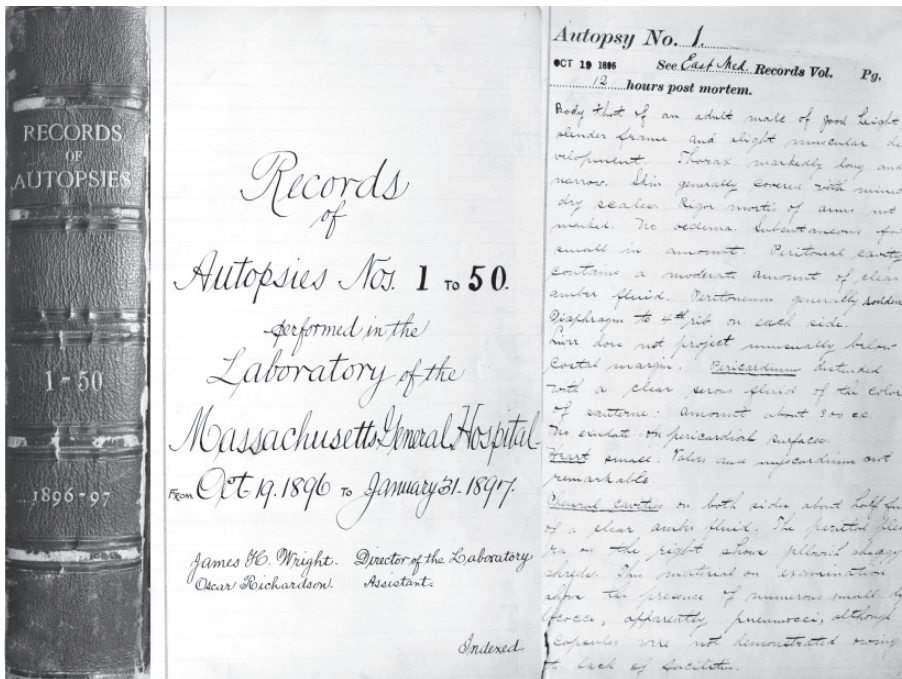 RECORDS
OF
AUTOPSIES
1-50
1896-97
Records
of
Autopsies Nos. 1 TO 50.
performed in the
Laboratory of the
Massachusetts General Hospital
FROM Oct 19. 1896 TO January 31. 1897.
James H. Wright. Director of the Laboratory
Oscar Richardson. Assistant.
Indexed
Autopsy No. 1.
OCT 19 1896 See East Med. Records Vol. Pg.
12 hours post mortem.
Body that of an adult male of good height
slender frame and slight muscular de
velopment. Thorax markedly long and
narrow. Skin generally covered with minute
dry scales. Rigor mortis of arms not
marked. No oedema. Subcutaneous
small in amount. Peritoneal cavity
contains a moderate amount of clear
amber fluid. Peritoneum generally
Diaphragm to 4th rib on each side.
Liver does not project unusually below
costal margin. Pericardium distended
with a clear serous fluid of the color
of sauterne: amount about cc.
No exudate on pericardial surfaces.
Heart small. Valves and myocardium not
remarkable.
Pleural cavities on both sides about half full
of a clear amber fluid. The parietal
on the right shows shaggy
shreds. This material on examination
shows the presence of numerous small
apparently pneumococci, although
capsules were not demonstrated owing
to lack of facilities.